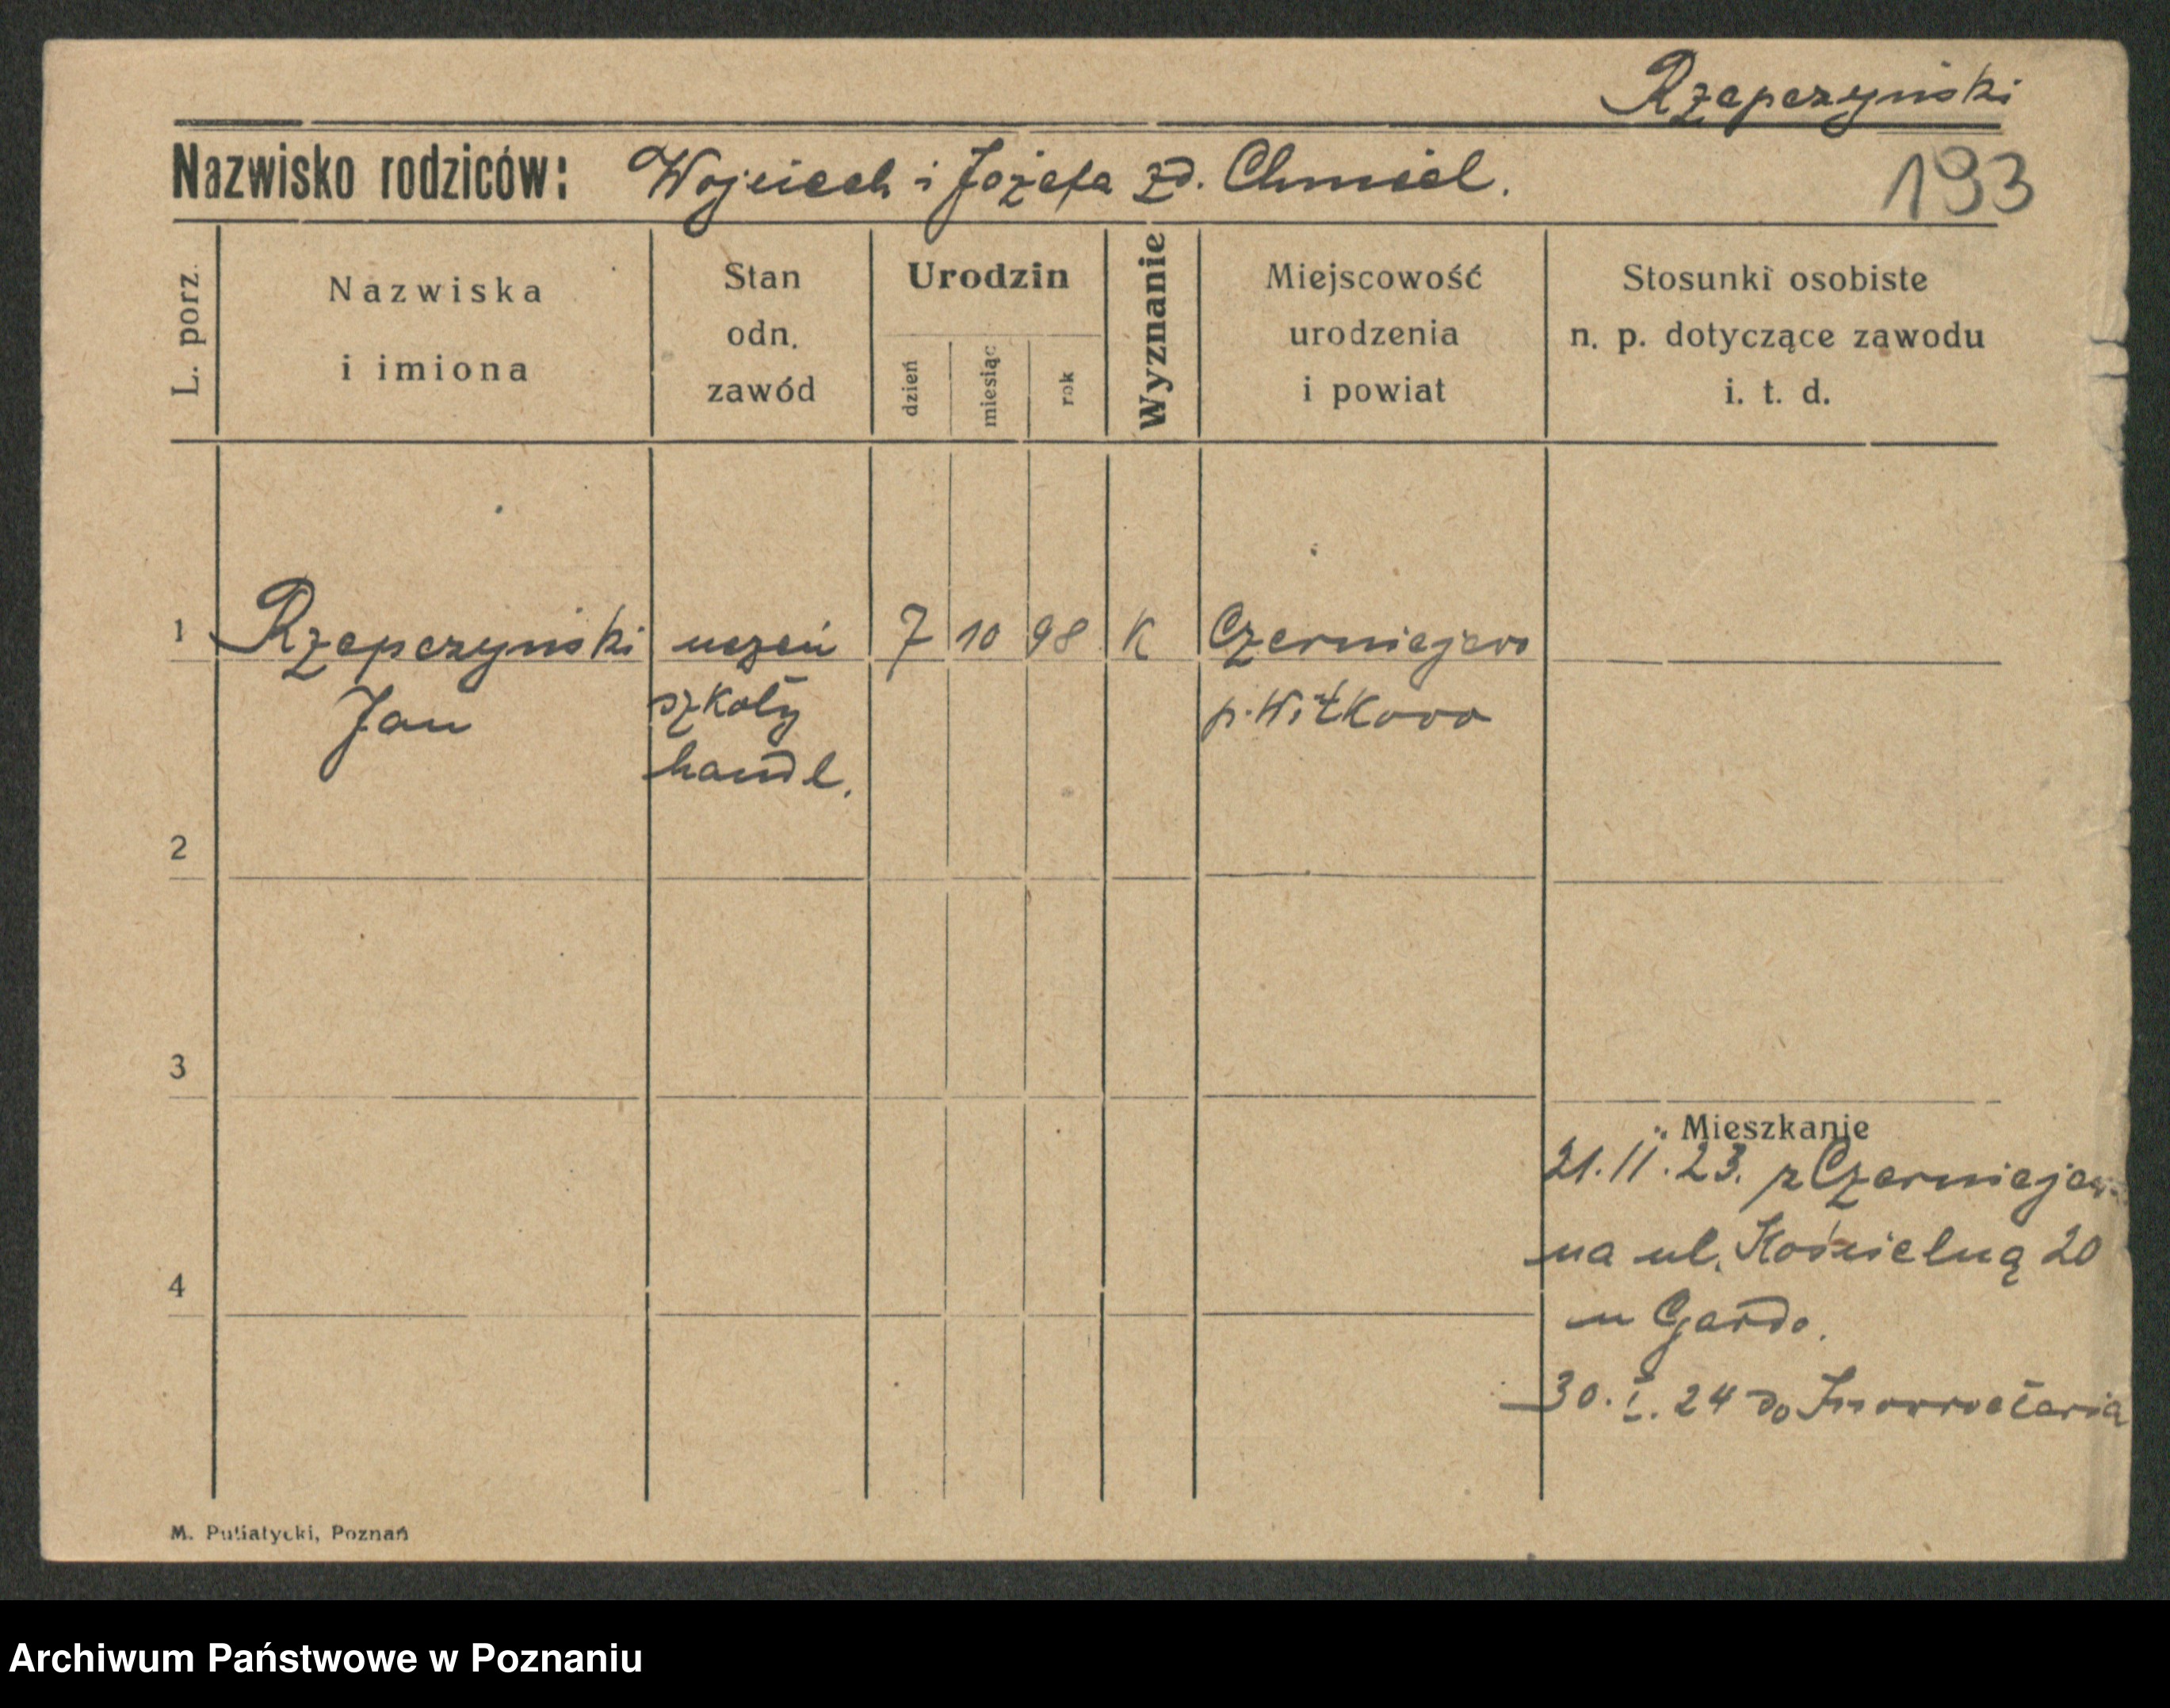 Rzepczyński
Nazwisko rodziców: Wojciech i Józefa zd. Chmiel.
193
L. porz.
Nazwiska
i imiona
Stan
odn.
zawód
Urodzin
dzień
miesiąc
rok
Wyznanie
Miejscowość
urodzenia
i powiat
Stosunki osobiste
n. p. dotyczące zawodu
i. t. d.
1 Rzepczyński uczeń 7 10 98 K Czerniejewo
Jan szkoły p. Witkowo
handl.
2
3
Mieszkanie
21.11.23. z Czerniejew
na ul. Kościelną 20
4
u Gardo.
30.I.24 do Inowrocławia
M. Putiatycki, Poznań
Archiwum Państwowe w Poznaniu